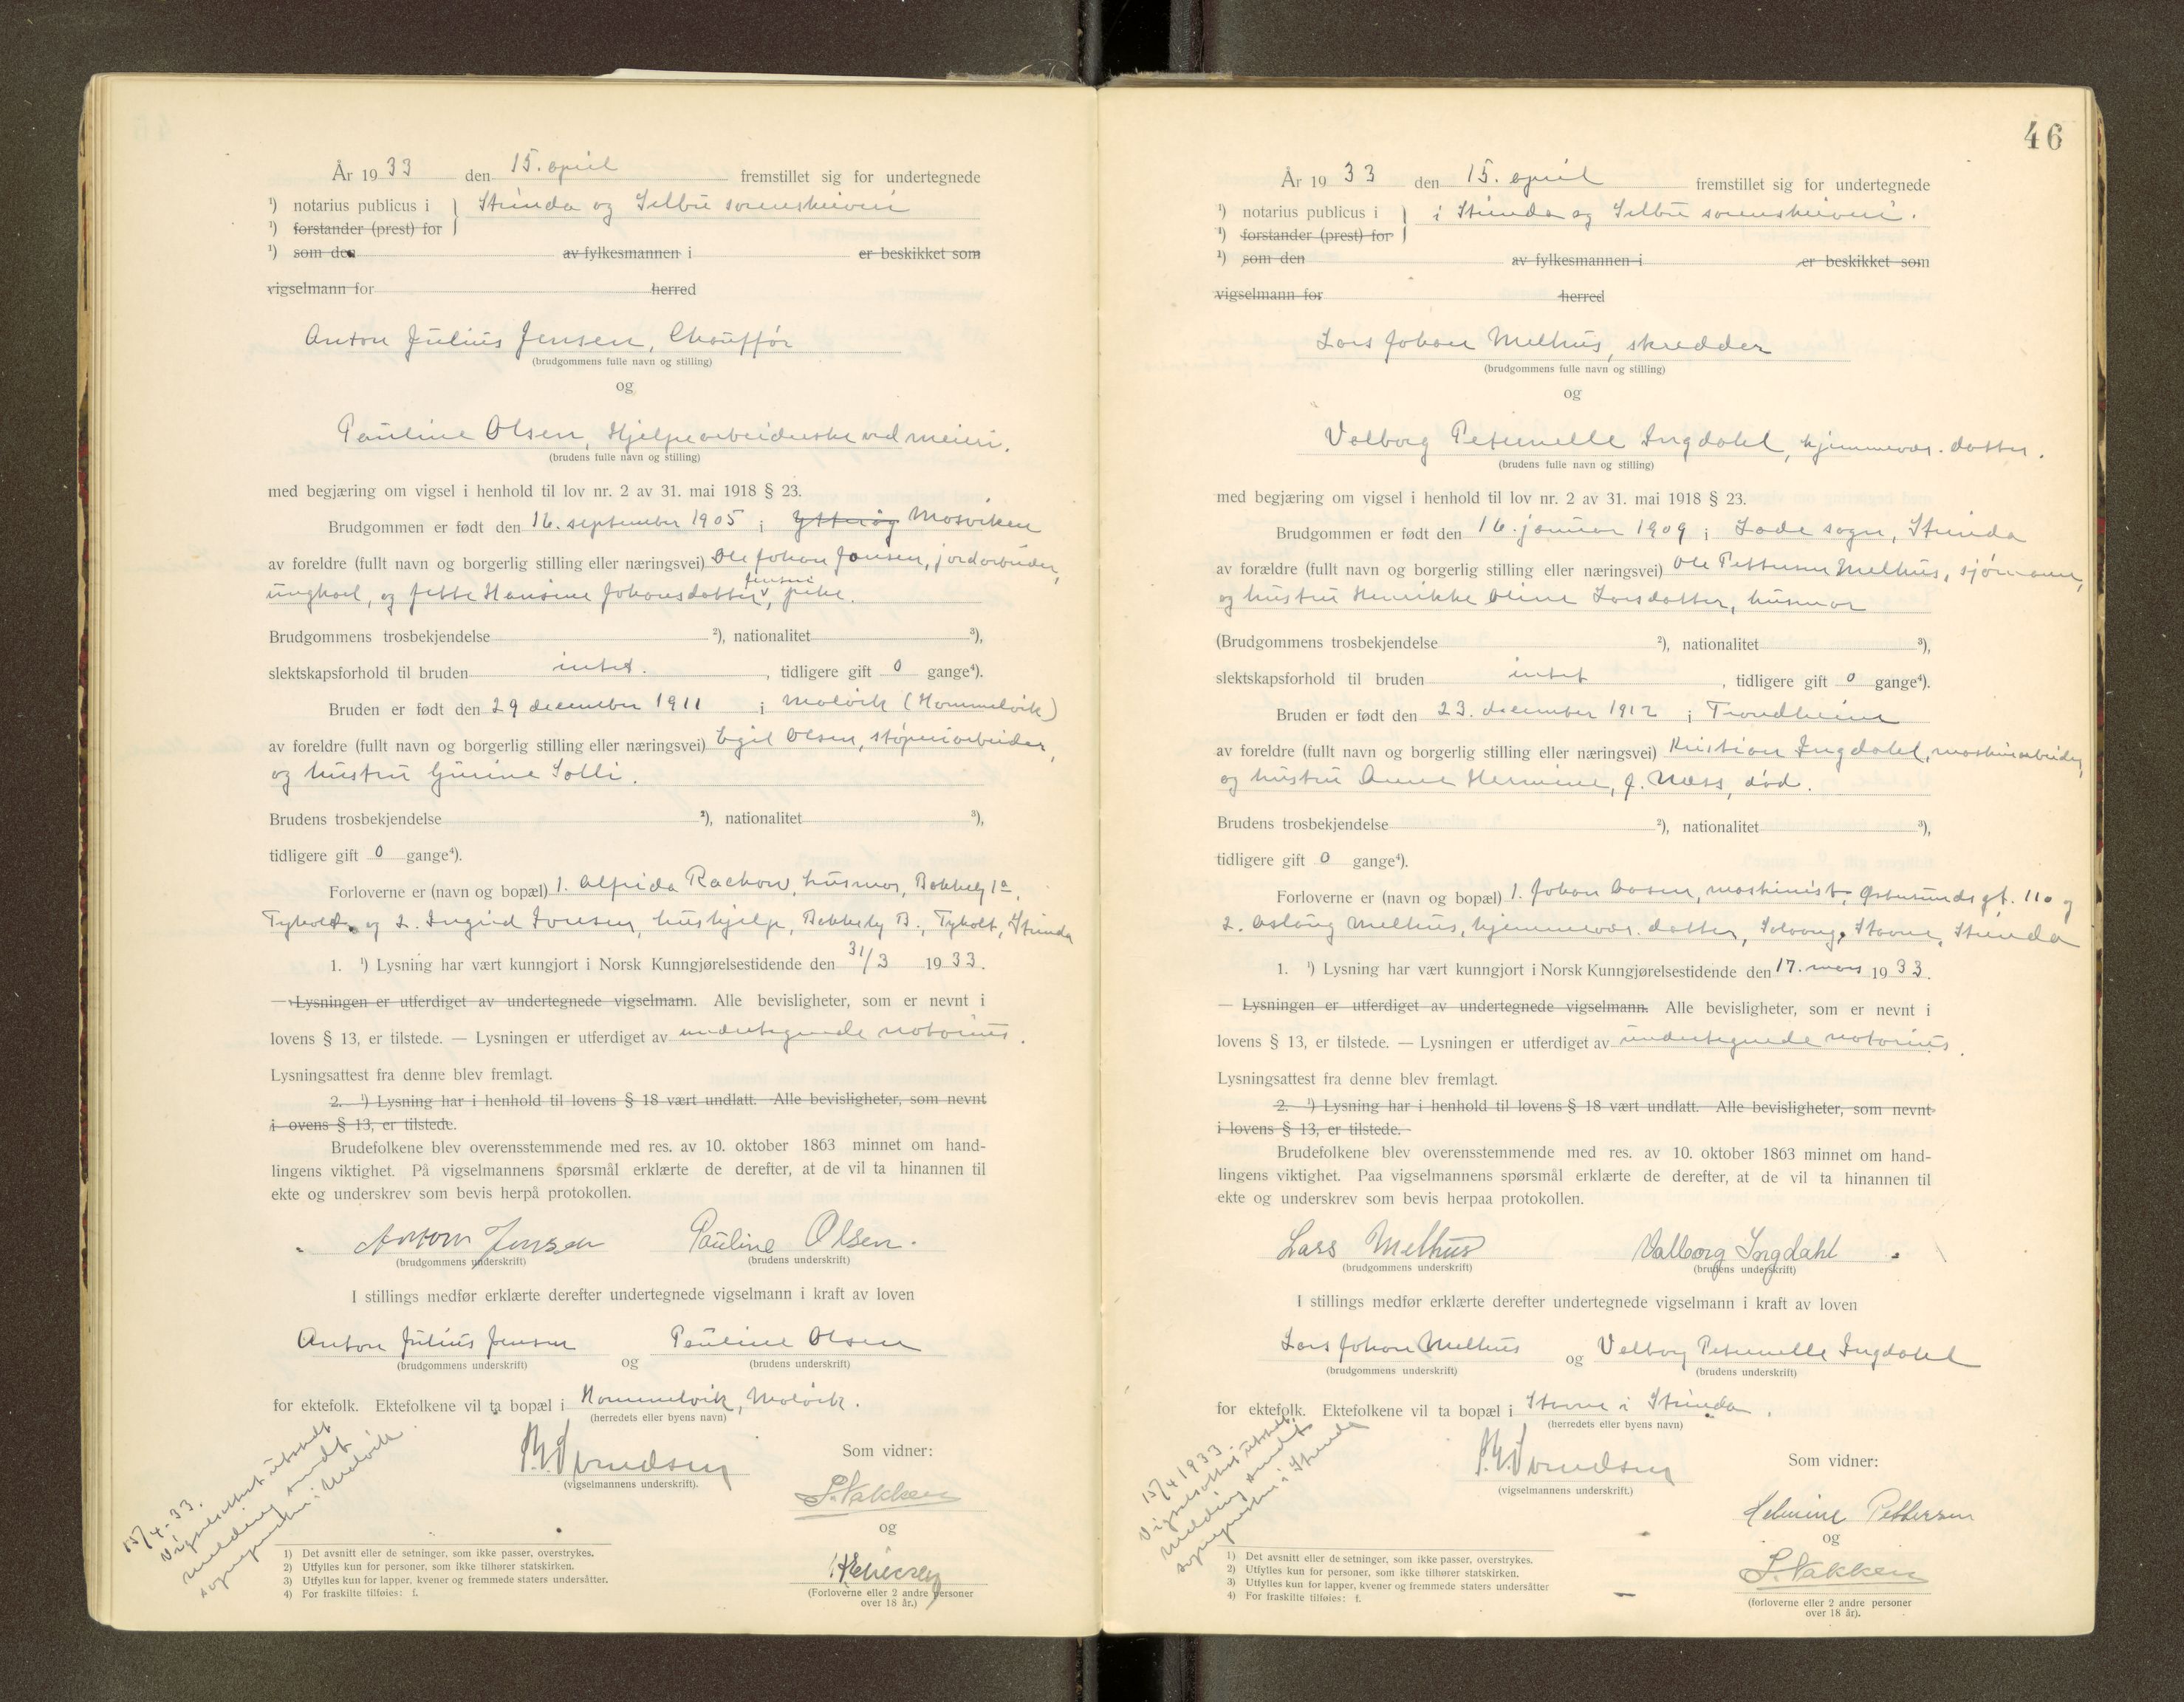 År 1933 den 15. april fremstillet sig for undertegnede
¹) notarius publicus i Strinda og Selbu sorenskriveri
¹) forstander (prest) for
¹) som den av fylkesmannen i er beskikket som
vigselmann for herred
Anton Julius Jensen, Chauffør
(brudgommens fulle navn og stilling)
og
Pauline Olsen, Hjelpearbeiderske ved meieri.
(brudens fulle navn og stilling)
med begjæring om vigsel i henhold til lov nr. 2 av 31. mai 1918 § 23.
Brudgommen er født den 16. september 1905 i Ytterøy Mosviken
av foreldre (fullt navn og borgerlig stilling eller næringsvei) Ole Johan Jensen, jordarbeider,
ungkarl, og Jette Hansine Johansdatter, pike.
Brudgommens trosbekjendelse ²), nationalitet ³),
slektskapsforhold til bruden intet. , tidligere gift 0 gange⁴).
Bruden er født den 29 december 1911 i Malvik (Hommelvik)
av foreldre (fullt navn og borgerlig stilling eller næringsvei) Egil Olsen, støperiarbeider,
og hustru Gurine Solli.
Brudens trosbekjendelse ²), nationalitet ³),
tidligere gift 0 gange⁴).
Forloverne er (navn og bopæl) 1. Alfida Rackow, husmor, Bakkely 1a,
Tyholt, og 2. Ingrid Jonsen, hushjelp, Bakkely B., Tyholt, Strinda
1. ¹) Lysning har vært kunngjort i Norsk Kunngjørelsestidende den 31/3 1933.
— Lysningen er utferdiget av undertegnede vigselmann. Alle bevisligheter, som er nevnt i
lovens § 13, er tilstede. — Lysningen er utferdiget av undertegnede notarius.
Lysningsattest fra denne blev fremlagt.
2. ¹) Lysning har i henhold til lovens § 18 vært undlatt. Alle bevisligheter, som nevnt
i ovens § 13, er tilstede.
Brudefolkene blev overensstemmende med res. av 10. oktober 1863 minnet om hand-
lingens viktighet. På vigselmannens spørsmål erklærte de derefter, at de vil ta hinannen til
ekte og underskrev som bevis herpå protokollen.
Anton Jensen Pauline Olsen.
(brudgommens underskrift) (brudens underskrift)
I stillings medfør erklærte derefter undertegnede vigselmann i kraft av loven
Anton Julius Jensen og Pauline Olsen
(brudgommens underskrift) (brudens underskrift)
for ektefolk. Ektefolkene vil ta bopæl i Hommelvik, Malvik.
(herredets eller byens navn)
(vigselmannens underskrift).
Som vidner:
S. Nakken
og
(Forloverne eller 2 andre personer
over 18 år.)
15/4-33.
Vigselsattest utstedt
melding sendt
sogneprsten i Malvik
1) Det avsnitt eller de setninger, som ikke passer, overstrykes.
2) Utfylles kun for personer, som ikke tilhører statskirken.
3) Utfylles kun for lapper, kvener og fremmede staters undersåtter.
4) For fraskilte tilføies: f.
46
År 1933 den 15. april fremstillet sig for undertegnede
¹) notarius publicus i i Strinda og Selbu sorenskriveri.
¹) forstander (prest) for
¹) som den av fylkesmannen i er beskikket som
vigselmann for herred
Lars Johan Melhus, skredder
(brudgommens fulle navn og stilling)
og
Valborg Petrnelle Ingdahl, hjemmevær. datter.
(brudens fulle navn og stilling)
med begjæring om vigsel i henhold til lov nr. 2 av 31. mai 1918 § 23.
Brudgommen er født den 16. januar 1909 i Lade sogn, Strinda
av forældre (fullt navn og borgerlig stilling eller næringsvei) Ole Petter Melhus, sjømann,
og hustru Henrikke Oline Larsdatter, husmor
(Brudgommens trosbekjendelse ²), nationalitet ³),
slektskapsforhold til bruden intet , tidligere gift 0 gange⁴).
Bruden er født den 23. december 1912 i Trondheim
av foreldre (fullt navn og borgerlig stilling eller næringsvei) Kristian Ingdahl, maskinarbeider,
og hustru Anna Hermine, f. Næss, død.
Brudens trosbekjendelse ²), nationalitet ³),
tidligere gift 0 gange⁴).
Forloverne er (navn og bopæl) 1. Johan Aasen, maskinist, Østersundsgt. 11a og
2. Aslaug Melhus, hjemmevær. datter, Solvang, Stavne, Strinda
1. ¹) Lysning har vært kunngjort i Norsk Kunngjørelsestidende den 17. mars 1933.
— Lysningen er utferdiget av undertegnede vigselmann. Alle bevisligheter, som er nevnt i
lovens § 13, er tilstede. — Lysningen er utferdiget av undertegnede notarius.
Lysningsattest fra denne blev fremlagt.
2. ¹) Lysning har i henhold til lovens § 18 vært undlatt. Alle bevisligheter, som nevnt
i lovens § 13, er tilstede.
Brudefolkene blev overensstemmende med res. av 10. oktober 1863 minnet om hand-
lingens viktighet. Paa vigselmannens spørsmål erklærte de derefter, at de vil ta hinannen til
ekte og underskrev som bevis herpaa protokollen.
Lars Melhus Valborg Ingdahl
(brudgommens underskrift) (brudens underskrift)
I stillings medfør erklærte derefter undertegnede vigselmann i kraft av loven
Lars Johan Melhus og Valborg Petrnelle Ingdahl
(brudgommens underskrift) (brudens underskrift)
for ektefolk. Ektefolkene vil ta bopæl i Stavne i Strinda.
(herredets eller byens navn)
(vigselmannens underskrift.)
Som vidner:
Helmine Pettersen
og
S. Nakken
(forloverne eller 2 andre personer
over 18 år).
15/4 1933.
Vigselsattest utstedt,
melding sendt
sogneprsten i Strinda
1) Det avsnitt eller de setninger, som ikke passer, overstrykes.
2) Utfylles kun for personer, som ikke tilhører statskirken.
3) Utfylles kun for lapper, kvener og fremmede staters undersåtter
4) For fraskilte tilføies: f.